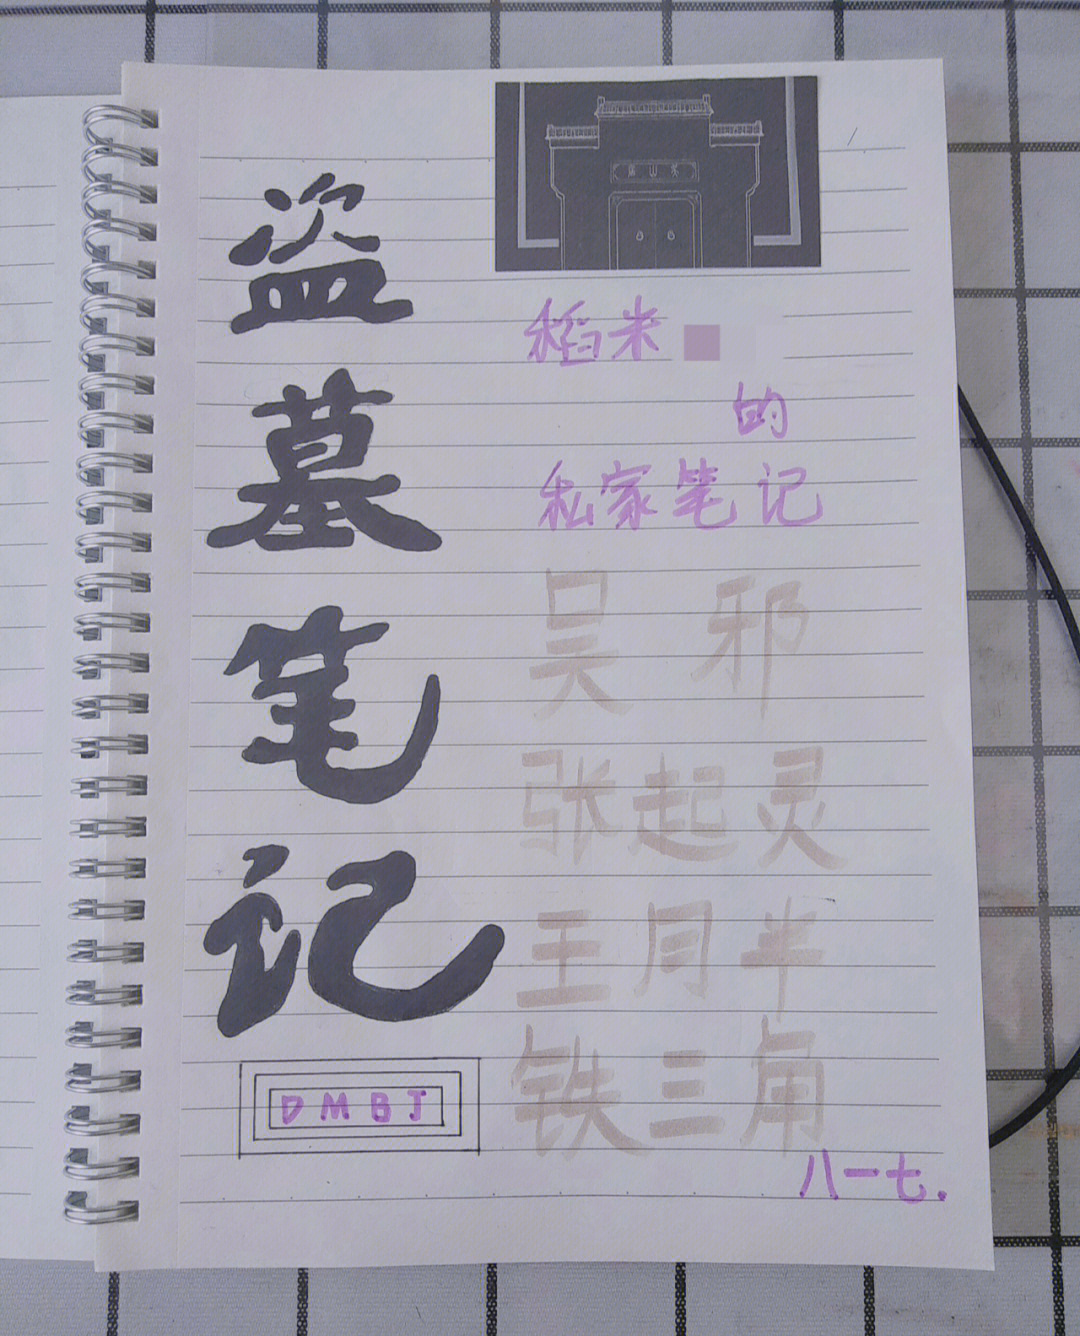 盗墓笔记
吴山居
稻米
的
私家笔记
吴 邪
张起灵
王月半
铁三角
DMBJ
八一七.